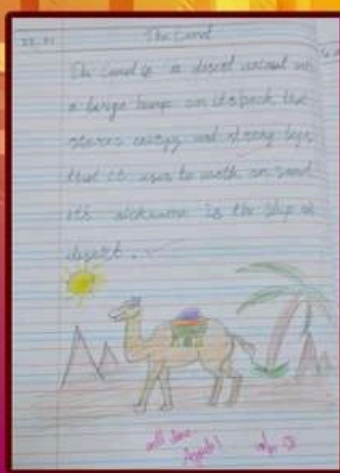 The Camel
The Camel is a desert animal
a large hump on its back that
stores energy and strong legs
that it uses to walk on sand
it's nickname is the ship of
desert.
well done